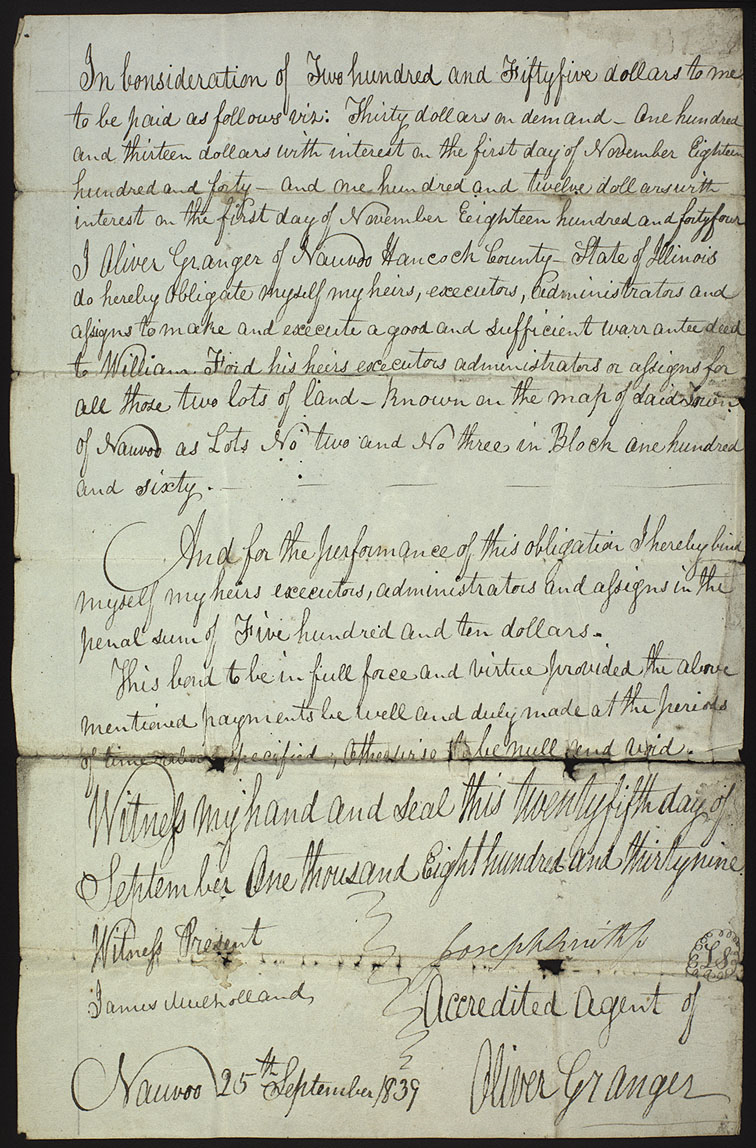 In Consideration of Two hundred and Fiftyfive dollars to me
to be paid as follows viz: Thirty dollars on demand – One hundred
and thirteen dollars with interest on the first day of November Eighteen
hundred and forty – and one hundred and twelve dollars with
interest on the first day of November Eighteen hundred and fortyfour
I Oliver Granger of Nauvoo Hancock County – State of Illinois
do hereby obligate myself my heirs, executors, administrators and
assigns to make and execute a good and sufficient warrantee deed
to William Ford his heirs executors administrators or assigns for
all those two lots of land – Known on the map of said Town
of Nauvoo as Lots No two and No three in Block one hundred
and sixty. –
And for the performance of this obligation I hereby bind
myself my heirs executors, administrators and assigns in the
penal sum of Five hundred and ten dollars.
This bond to be in full force and virtue provided the above
mentioned payments be well and duly made at the periods
of time above specified; otherwise to be null and void. –
Witness my hand and seal this twentyfifth day of
September One thousand Eight hundred and thirtynine
Witness Present
Joseph Smith Jr LS
James Mulholland
Accredited Agent of
Nauvoo 25th September 1839
Oliver Granger